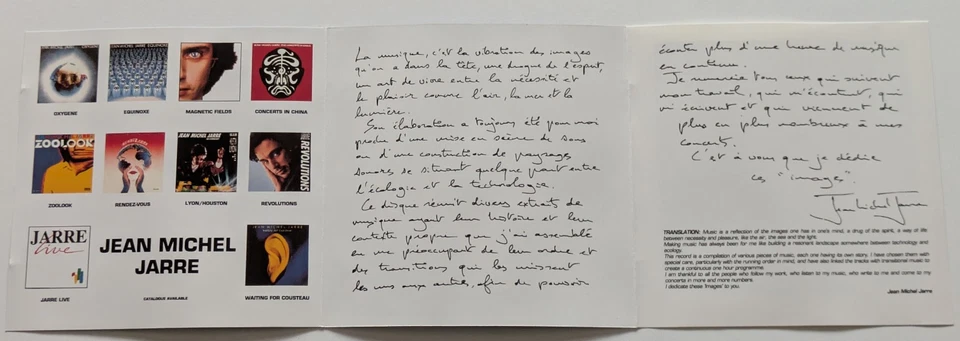 OXYGENE
EQUINOXE
MAGNETIC FIELDS
CONCERTS IN CHINA
ZOOLOOK
ZOOLOOK
RENDEZ-VOUS
JEAN MICHEL JARRE
LYON/HOUSTON
REVOLUTIONS
REVOLUTIONS
JARRE
live
JARRE LIVE
JEAN MICHEL
JARRE
CATALOGUE AVAILABLE
WAITING FOR COUSTEAU
La musique, c'est la vibration des images
qu'on a dans la tête, une drogue de l'esprit,
un art de vivre entre la nécessité et
le plaisir comme l'air, la mer et la
lumière.
Son élaboration a toujours été pour moi
proche d'une mise en scène de sons
ou d'une construction de paysages
sonores se situant quelque part entre
l'écologie et la technologie.
Ce disque réunit divers extraits de
musique ayant leur histoire et leur
contexte propre que j'ai assemblé
en me préoccupant de leur ordre et
des transitions qui les unissent
les uns aux autres, afin de pouvoir
écouter plus d'une heure de musique
en continu.
Je remercie tous ceux qui suivent
mon travail, qui m'écoutent, qui
m'écrivent et qui viennent de
plus en plus nombreux à mes
concerts.
C'est à vous que je dédie
ces "images".
Jean Michel Jarre
TRANSLATION: Music is a reflection of the images one has in one's mind, a drug of the spirit, a way of life
between necessity and pleasure, like the air, the sea and the light.
Making music has always been for me like building a resonant landscape somewhere between technology and
ecology.
This record is a compilation of various pieces of music, each one having its own story. I have chosen them with
special care, particularly with the running order in mind, and have also linked the tracks with transitional music to
create a continuous one hour programme.
I am thankful to all the people who follow my work, who listen to my music, who write to me and come to my
concerts in more and more numbers.
I dedicate these 'Images' to you.
Jean Michel Jarre